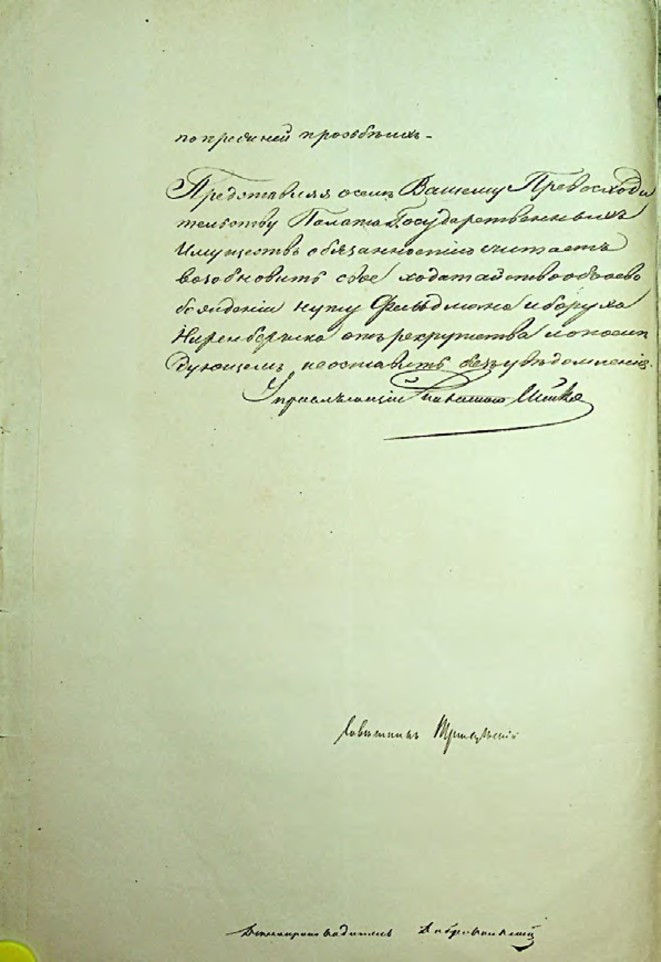 по прежней прозьбѣ ихъ.-
Представляя о семъ Вашему Превосходи
тельству Палата Государственныхъ
Имуществъ обязанностію считаетъ
возобновить свое ходатайство объ осво
божденіи Нуту Фельдмана и Боруха
Ниренберга отъ рекрутства и о послѣ
дующемъ не оставить безъ увѣдомленія.
Управляющій Палатою
Совѣтникъ